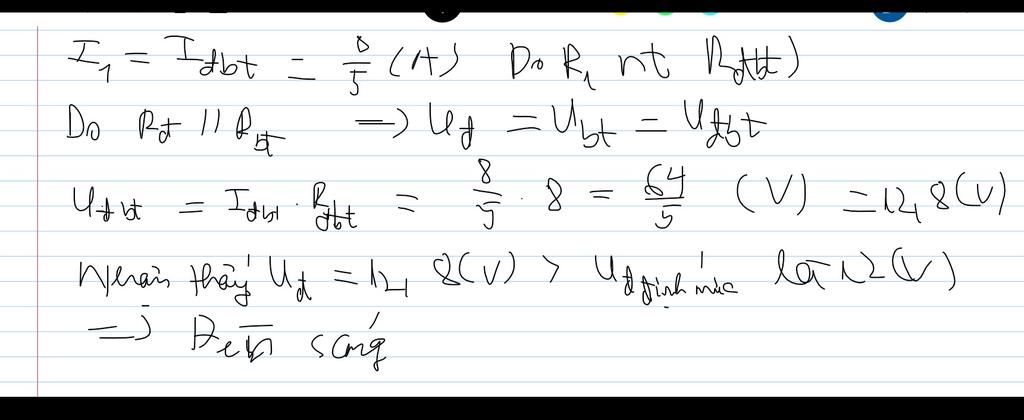 I₁ = I_đbt = 8/5 (A) Do R₁ nt R_đbt)
Do R_đ // R_bt => U_đ = U_bt = U_đbt
U_đbt = I_đbt . R_đbt = 8/5 . 8 = 64/5 (V) = 12,8 (V)
Nhận thấy U_đ = 12,8(V) > U_đ định mức là 12(V)
=> Đèn sáng